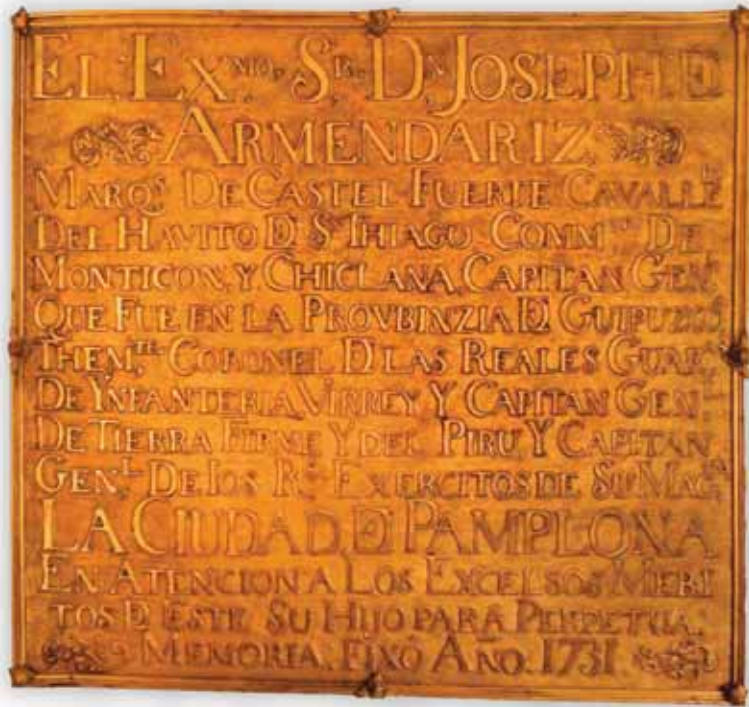 EL. EX.MO. SR. DN. JOSEPH. E
ARMENDARIZ,
MARQS. DE CASTEL FUERTE CAVALLERO
DEL HAVITO D. S THIAGO COMMOR DE
MONTICON, Y CHICLANA, CAPITAN GENL.
QUE FUE EN LA PROVBINZIA D. GUIPUZCO
THEM.TE CORONEL D LAS REALES GUAR
DE YNFANTERIA, VIRREY Y CAPITAN GENL.
DE TIERRA FIRME Y DEL PIRU, Y CAPITAN
GEN.L DE lOS RS. EXERCITOS DE SU MAG.
LA CIUDAD, D. PAMPLONA
EN ATENCION A LOS EXCELSOS MERI
TOS D. ESTE SU HIJO PARA PERPETUA.
MEMORIA. FIXO AÑO. 1731.